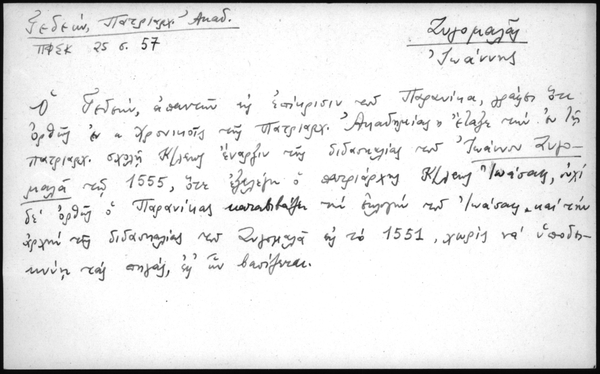 Γεδεών, Πατριαρχ. Ἀκαδ.
ΠΦΣΚ 25 σ. 57
Ζυγομαλᾶς
Ἰωάννης
Ὁ Γεδεών, ἀπαντῶν εἰς ἐπίκρισιν τοῦ Παρανίκα, γράφει ὅτι
ὀρθῶς ἐν « Χρονικοῖς τῆς Πατριαρχ. Ἀκαδημίας » ἔταξε τὴν ἐν τῇ
πατριαρχ. σχολῇ Κ/λεως ἔναρξιν τῆς διδασκαλίας τοῦ Ἰωάννου Ζυγο-
μαλᾶ τῷ 1555, ὅτε ἐξελέγη ὁ πατριάρχης Κ/λεως Ἰωάσαφ, οὐχὶ
δὲ ὀρθῶς ὁ Παρανίκας καταβιβάζει τὴν ἐκλογὴν τοῦ Ἰωάσαφ καὶ τὴν
ἀρχὴν τῆς διδασκαλίας τοῦ Ζυγομαλᾶ εἰς τὸ 1551, χωρὶς νὰ ὑποδει-
κνύῃ τὰς πηγάς, ἐφ' ὧν βασίζεται.